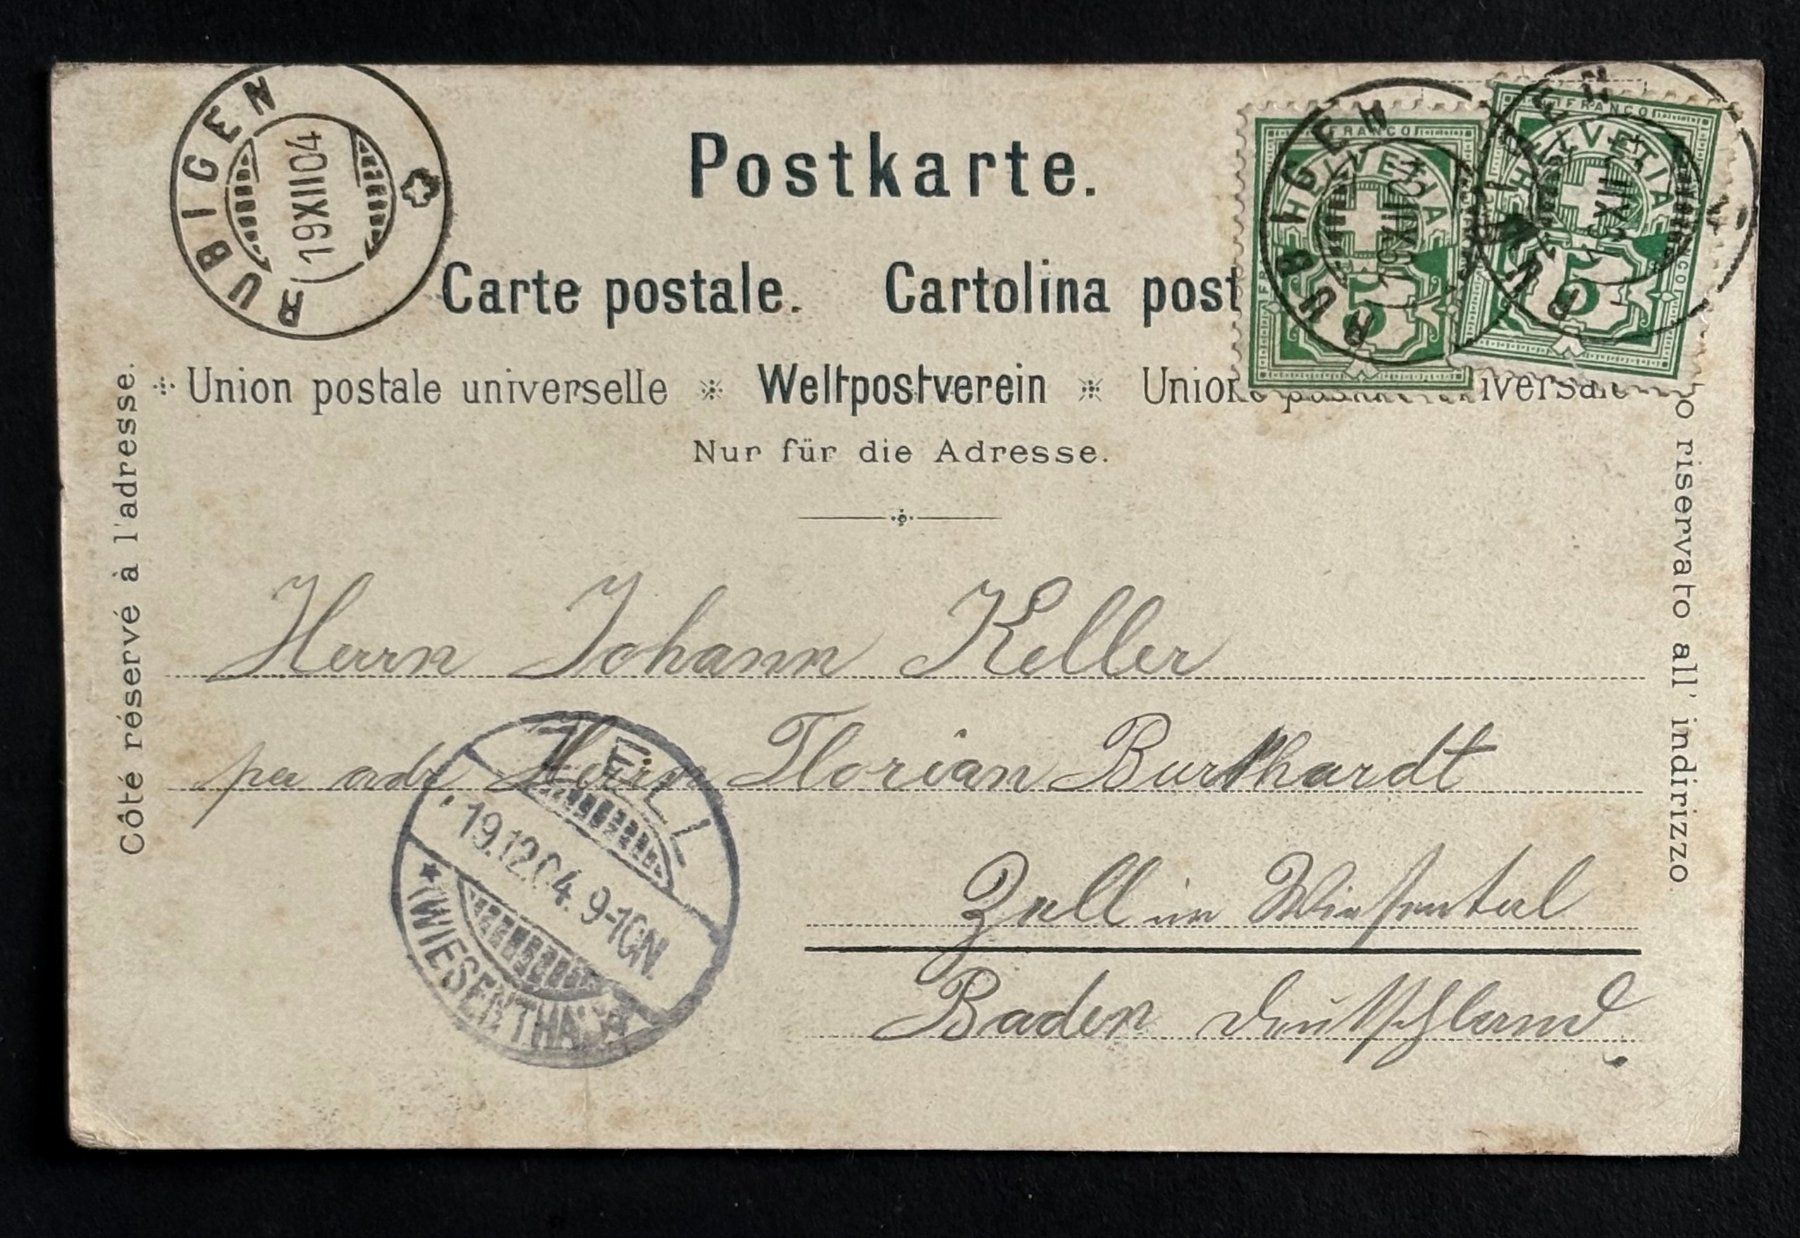 RUBIGEN
19 XII 04
Postkarte.
Carte postale. Cartolina post
FRANCO
HELVETIA
5
RUBIGEN
19 XII 04
FRANCO
HELVETIA
5
FRANCO
Union postale universelle Weltpostverein
Nur für die Adresse.
Côté réservé à l'adresse.
o riservato all' indirizzo.
Herrn Johann Keller
per adr Herrn Florian Burkhardt
Zell im Wiesental
Baden Deutschland
ZELL
19.12.04. 9-10N.
(WIESENTHAL)